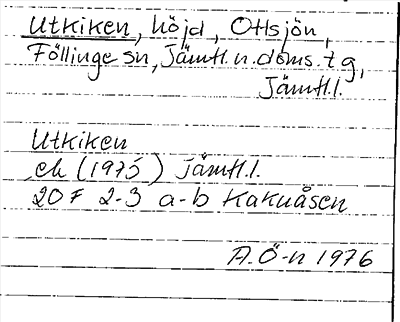 Utkiken, höjd, Ottsjön,
Föllinge sn, Jämtl. n. doms. tg,
Jämtl.l.
Utkiken
ek (1975) Jämtl.l.
20F 2-3 a-b Kakuåsen
A.Ö-n 1976